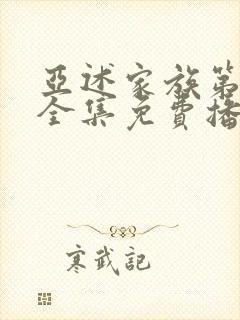 亞述家族第
全集免費播
寒武記